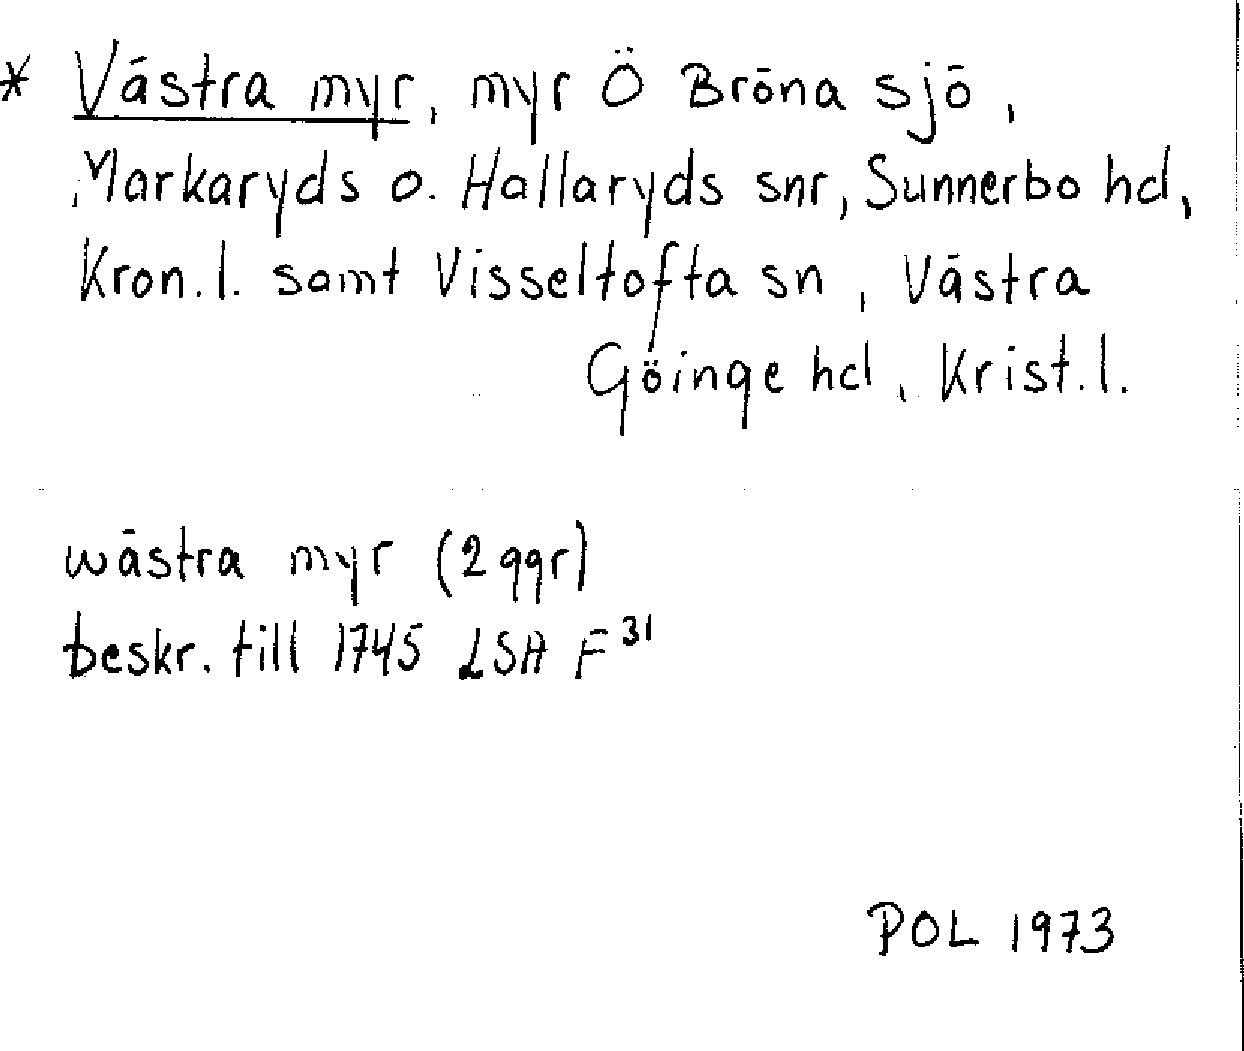 * Västra myr, myr Ö Bröna sjö,
Markaryds o. Hallaryds snr, Sunnerbo hd,
Kron.l. samt Visseltofta sn, Västra
Göinge hd, Krist.l.
wästra myr (2 ggr)
beskr. till 1745 LSA F 31
POL 1973